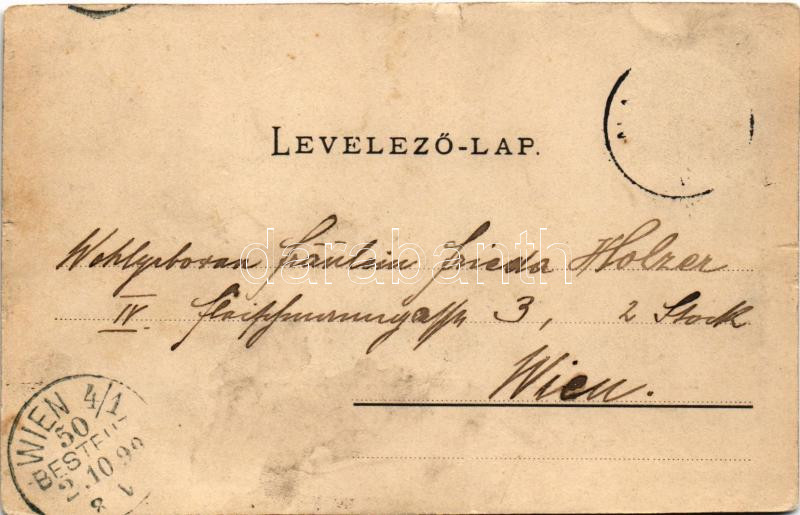 LEVELEZŐ-LAP.
Wohlgeboren Fräulein Frieda Holzer
IV. Fleischmanngasse 3, 2 Stock
Wien.
WIEN 4/1
50
BESTELLT
2.10.99
darabanth